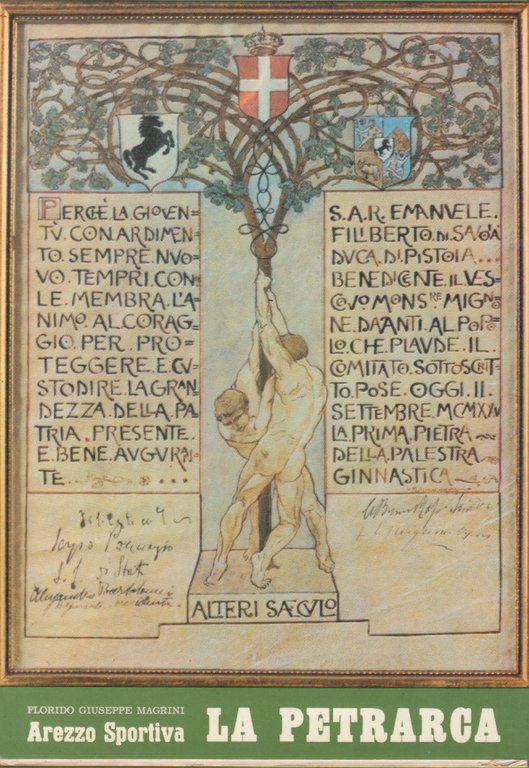 PERCHÈ.LA.GIOVEN=
TV.CON.ARDIMEN=
TO.SEMPRE.NUO=
VO.TEMPRI.CON=
LE.MEMBRA.L'A=
NIMO.AL.CORAG=
GIO.PER.PRO=
TEGGERE.E.CV=
STODIRE.LA.GRAN=
DEZZA.DELLA.PA=
TRIA.PRESENTE.
E.BENE.AVGVRAN=
TE
S.A.R.EMANVELE.
FILIBERTO.DI.SAVOIA
DVCA.DI.PISTOIA...
BENEDICENTE.IL.VES=
COVO.MONS.RE MIGNO=
NE.DAVANTI.AL.POPO=
LO.CHE.PLAVDE.IL
COMITATO.SOTTOSCRIT=
TO.POSE.OGGI.II.
SETTEMBRE.MCMXXV
LA.PRIMA.PIETRA
DELLA.PALESTRA
GINNASTICA
Alessandro Bartolomei
ALTERI SÆCVLO
FLORIDO GIUSEPPE MAGRINI
Arezzo Sportiva LA PETRARCA